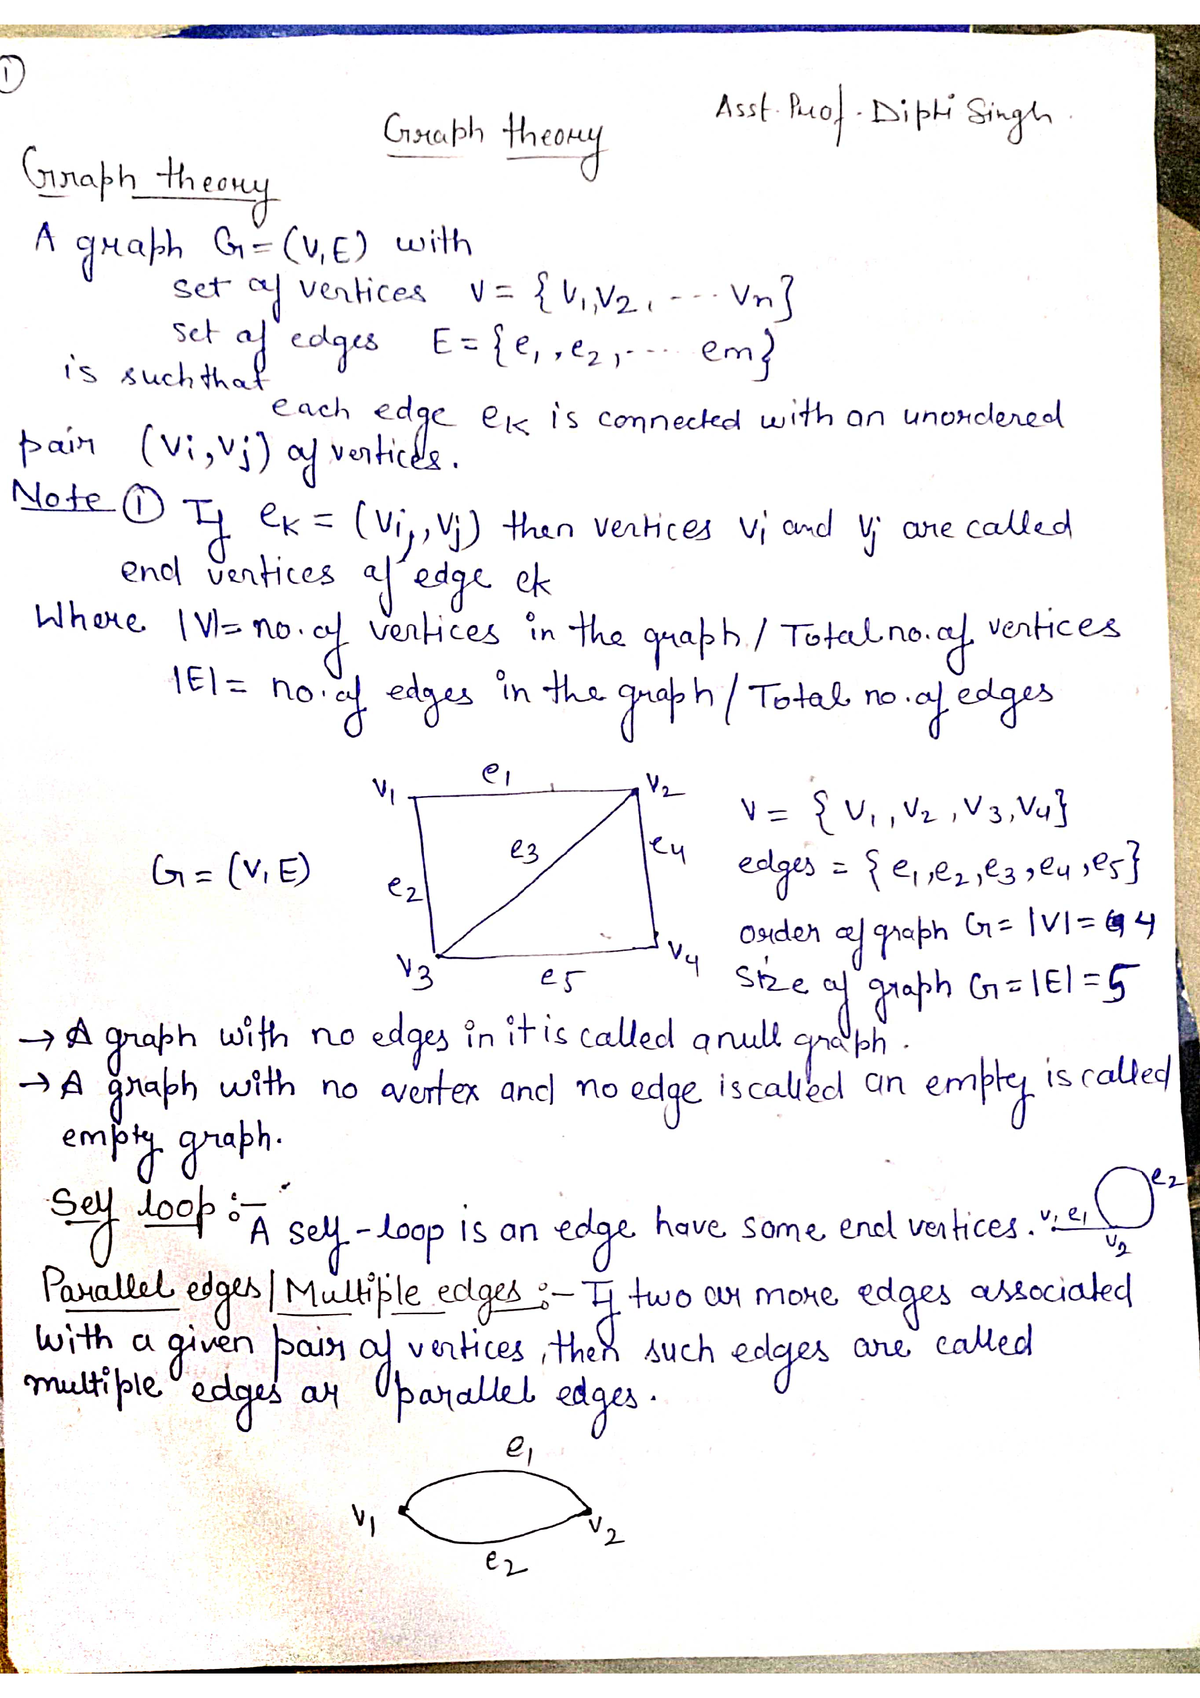 1
Graph theory
Asst. Prof. Dipti Singh.
Graph theory
A graph G = (V, E) with
set of vertices V = { V1, V2, ---- Vn}
set of edges E = { e1, e2, ---- em}
is such that
each edge eK is connected with an unordered
pair (Vi, Vj) of vertices.
Note ① If eK = (Vi, Vj) then vertices Vi and Vj are called
end vertices of edge ek
Where |V| = no. of vertices in the graph. / Total no. of vertices
|E| = no. of edges in the graph / Total no. of edges
V1 e1 V2
V = { V1, V2, V3, V4}
G = (V, E) e2 e3 e4
edges = { e1, e2, e3, e4, e5}
order of graph G = |V| = 4
V3 e5 V4
Size of graph G = |E| = 5
→ A graph with no edges in it is called a null graph.
→ A graph with no avertex and no edge is called an empty is called
empty graph.
Self loop :- A self-loop is an edge have same end vertices. V1 e1 V2 e2
Parallel edges | Multiple edges :- If two or more edges associated
with a given pair of vertices, then such edges are called
multiple edges or parallel edges.
e1
V1 V2
e2